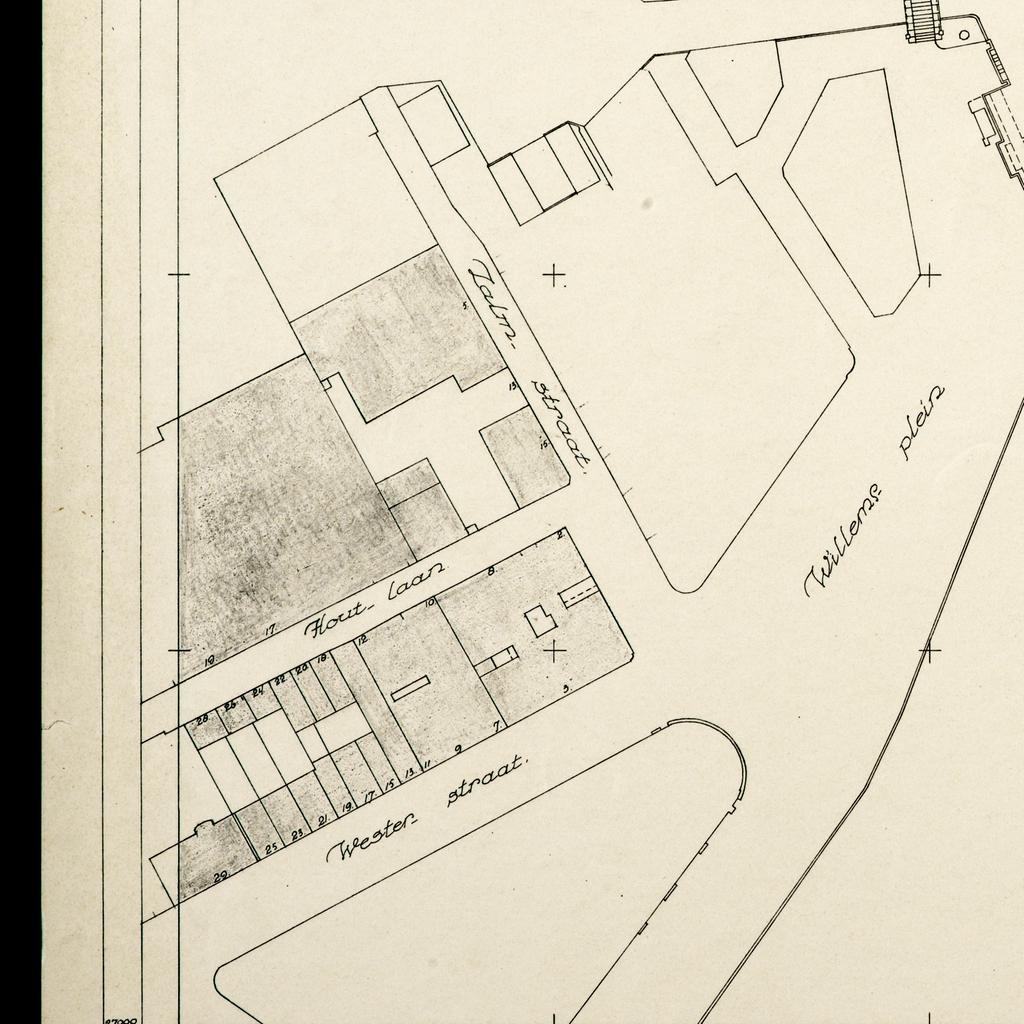 Zalm-
straat.
5.
13.
15.
Willems-
plein
Hout- laan
19.
17.
2.
8.
10.
12.
18.
20.
22.
24.
26.
28.
3.
7.
9
11
13.
15
17.
19.
21.
23
25
29.
Wester- straat.
87000